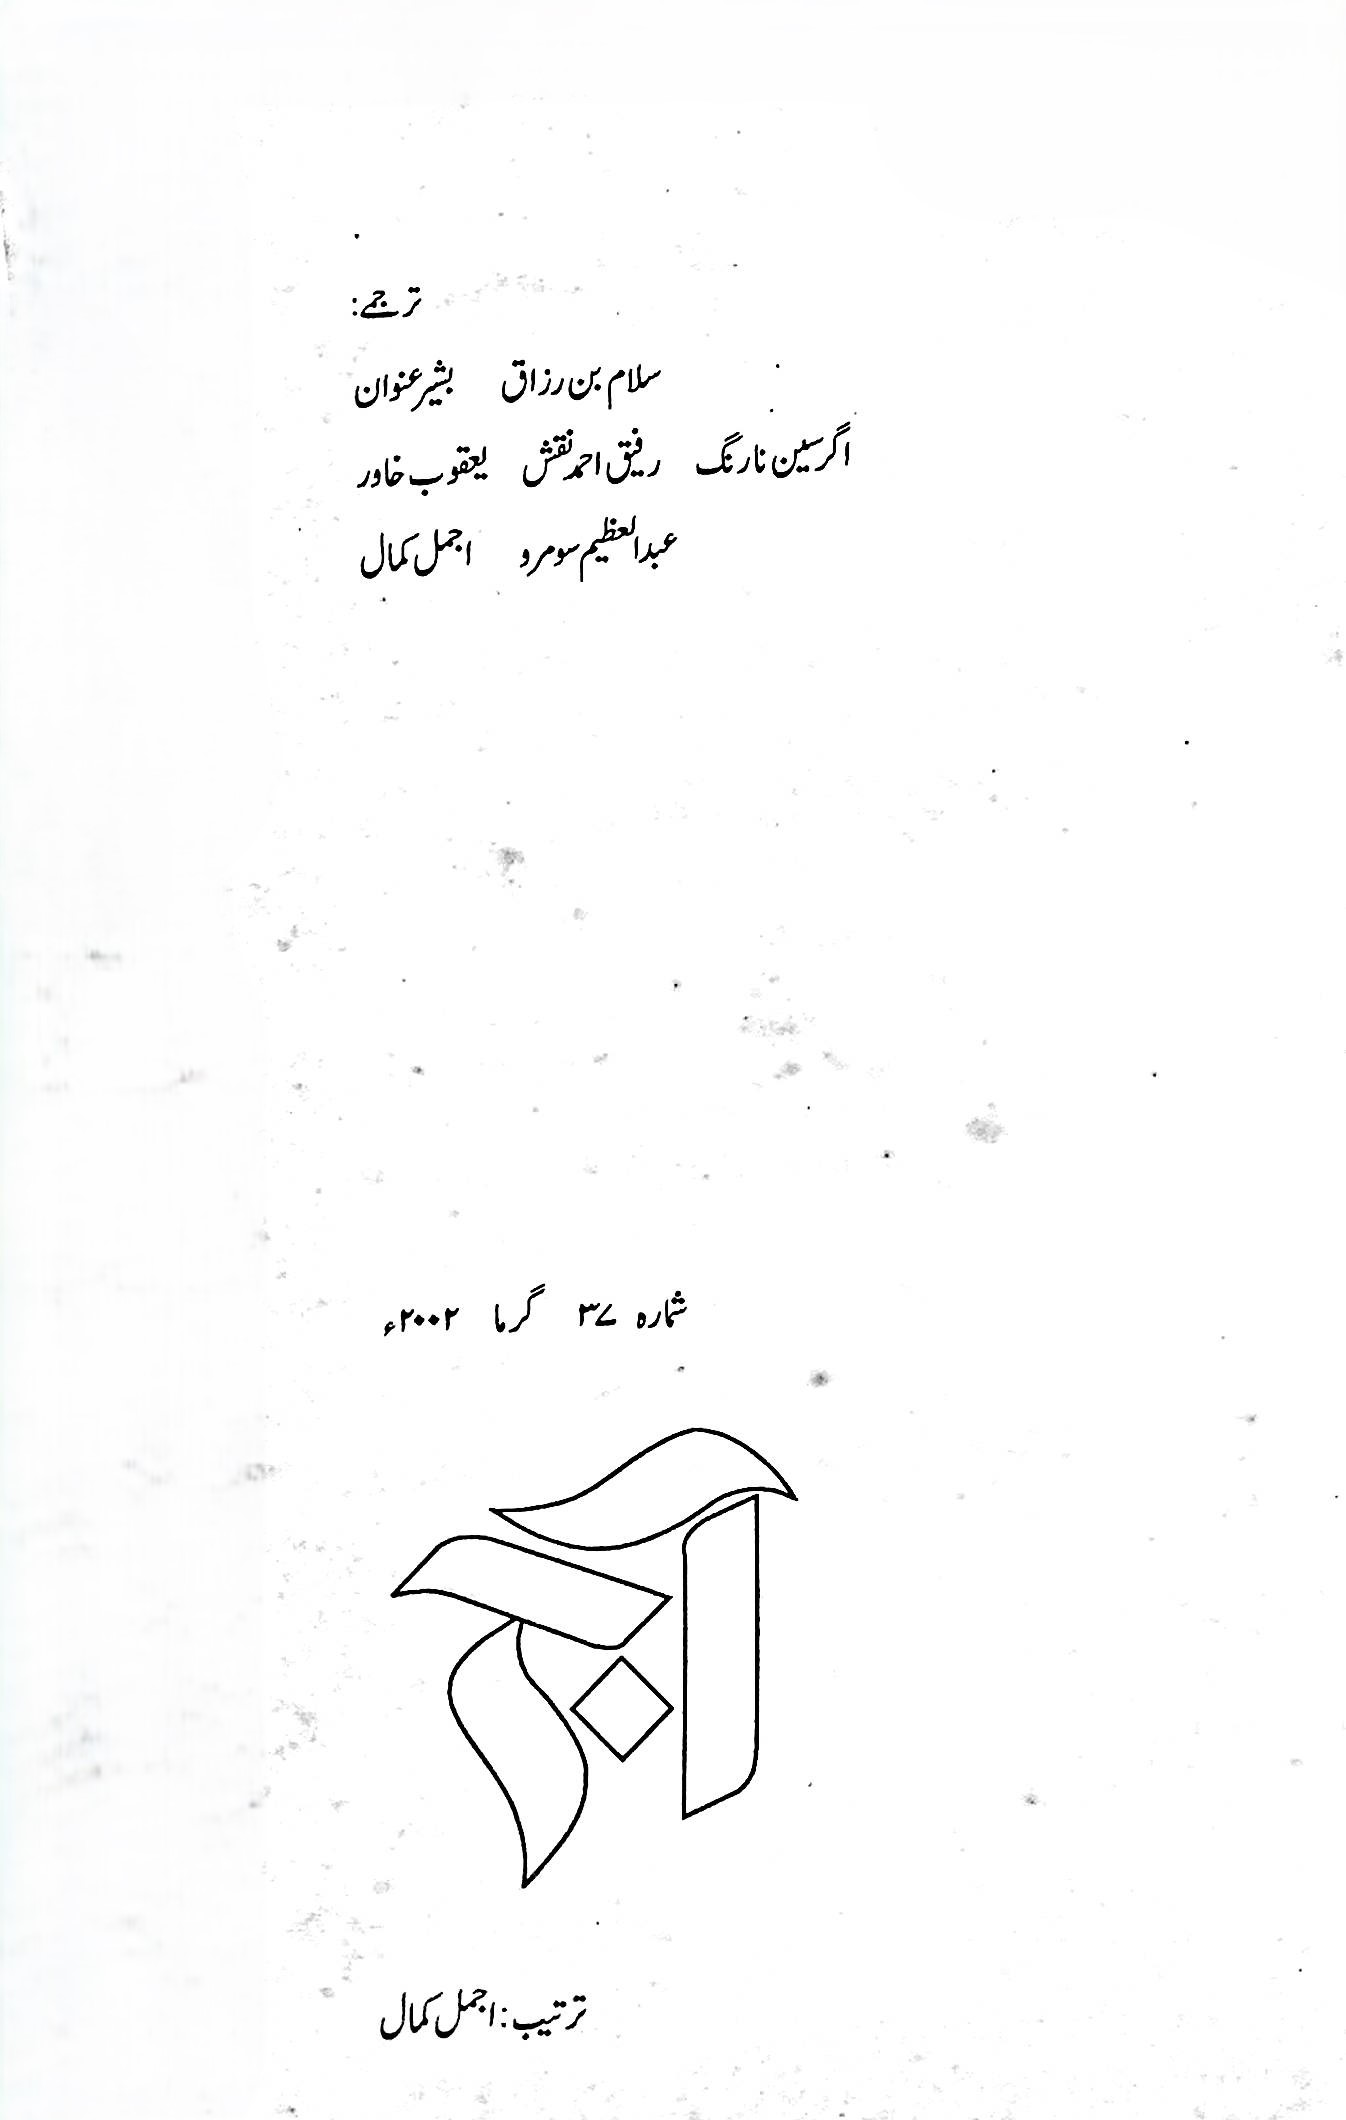 ترجمے:
سلام بن رزاق بشیر عنوان
اگر سین نارنگ رفیق احمد نقش یعقوب خاور
عبدالعظیم سومرو اجمل کمال
شمارہ ۳۷ گرما ۲۰۰۲ء
آج
ترتیب: اجمل کمال